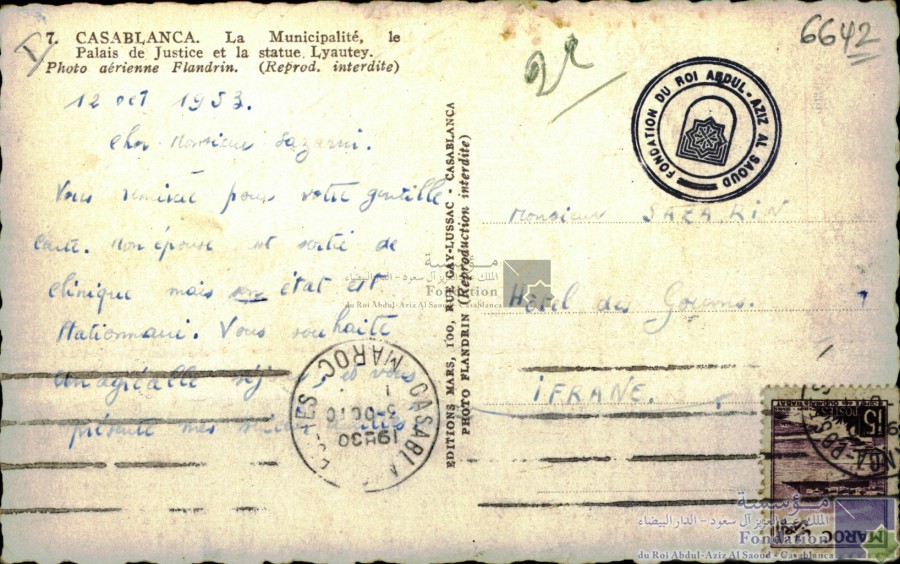 7. CASABLANCA. La Municipalité, le
Palais de Justice et la statue Lyautey.
Photo aérienne Flandrin. (Reprod. interdite)
6642
FONDATION DU ROI ABDUL-AZIZ AL SAOUD
12 oct 1953.
Cher Monsieur
Vous remercie pour votre gentille
carte. Mon épouse est sortie de
clinique mais son état est
stationnaire. Vous souhaite
un agréable séjour, et vous
présente mes
EDITIONS MARS, 100, RUE GAY-LUSSAC - CASABLANCA
PHOTO FLANDRIN (Reproduction interdite)
Monsieur SAZAKIN
Hôtel des Goums.
IFRANE.
CASABLA
MAROC
3-OCTO
19H30
15F
POSTES
MAROC
مؤسسة
الملك عبد العزيز آل سعود - الدار البيضاء
Fondation
du Roi Abdul-Aziz Al Saoud - Casablanca
مؤسسة
الملك عبد العزيز آل سعود - الدار البيضاء
Fondation
du Roi Abdul-Aziz Al Saoud - Casablanca